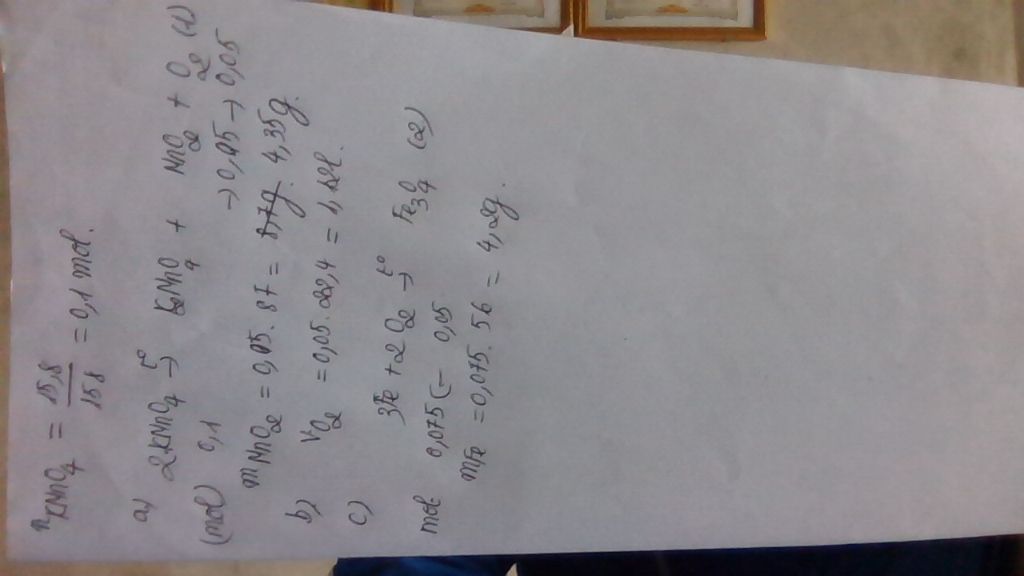 nKMnO4 = 15,8/158 = 0,1 mol.
a) 2KMnO4 →t° K2MnO4 + MnO2 + O2 (1)
(mol) 0,1 → 0,05 → 0,05
mMnO2 = 0,05 . 87 = 8,7g. 4,35g.
b) VO2 = 0,05. 22,4 = 1,12l.
c) 3Fe + 2O2 →t° Fe3O4 (2)
mol 0,075 ← 0,05
mFe = 0,075. 56 = 4,2g.